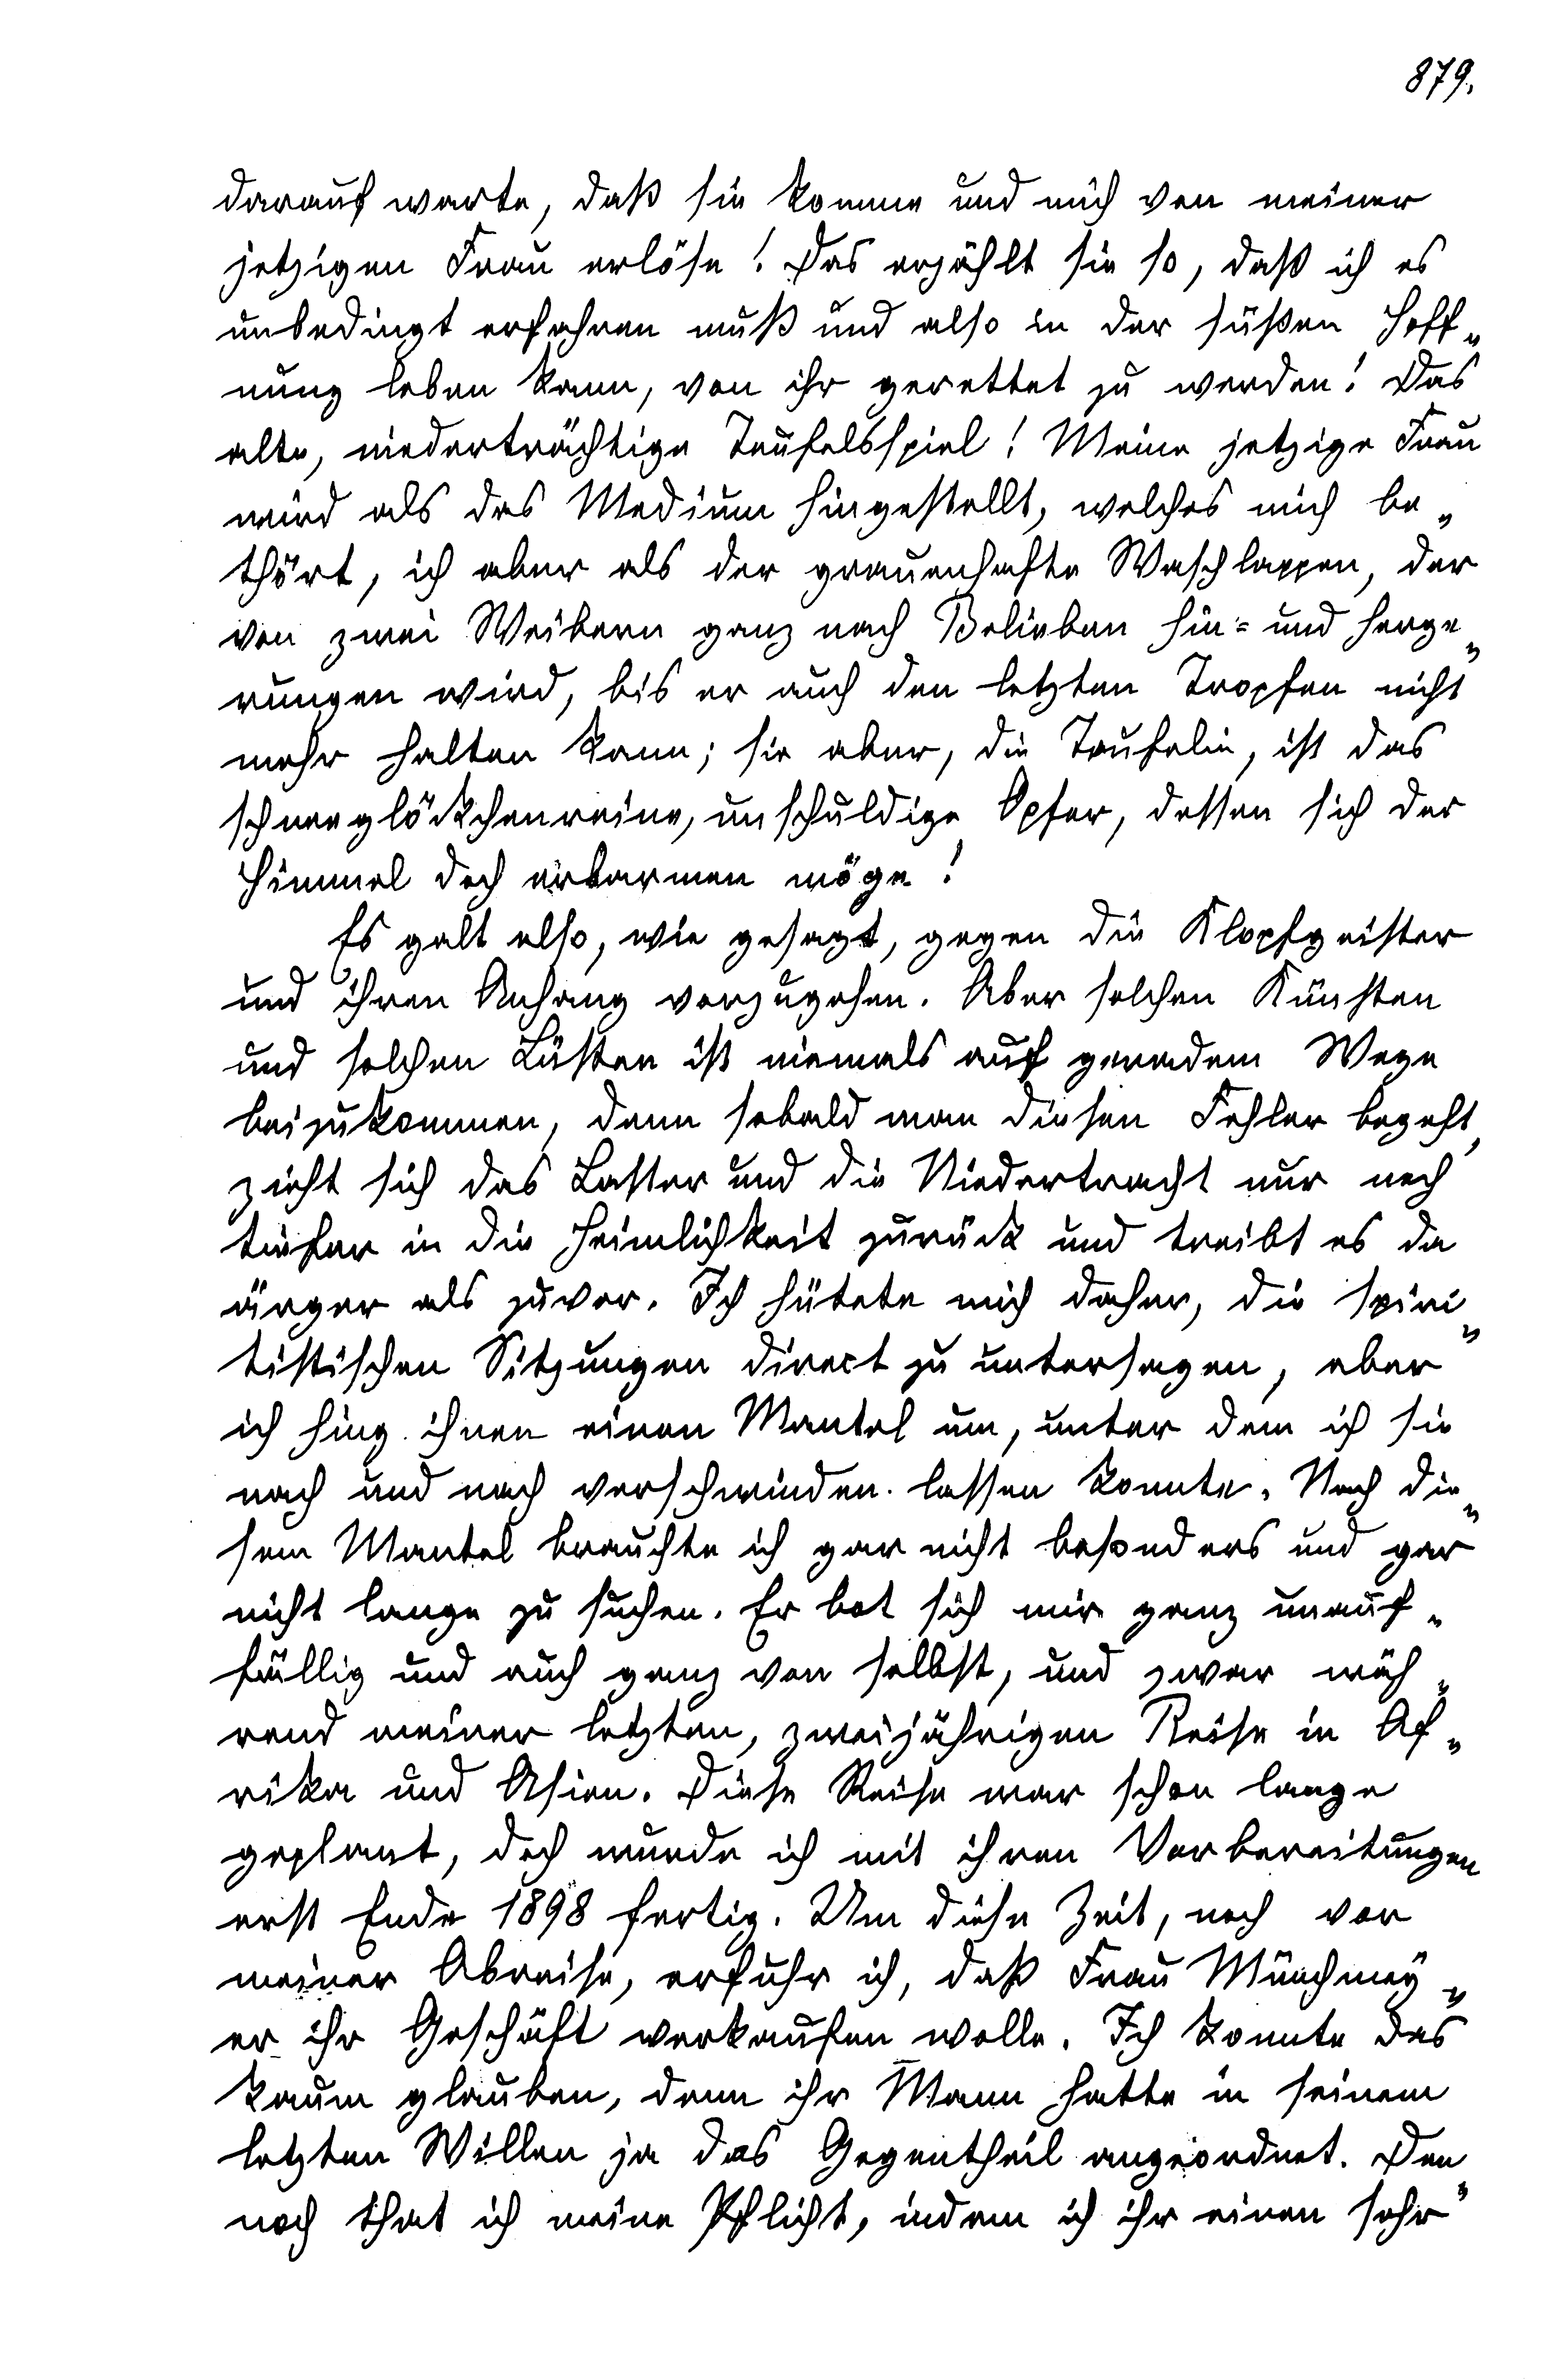 879.
darauf warte, daß sie komme und mich von meiner
jetzigen Frau erlöse! Das erzählt sie so, daß ich es
unbedingt erfahren muß und also in der süßen Hoff„
nung leben kann, von ihr gerettet zu werden! Das
alte, niederträchtige Teufelsspiel! Meine jetzige Frau
wird als das Medium hingestellt, welches mich be„
thört, ich aber als der grauenhafte Waschlappen, der
von zwei Weibern ganz nach Belieben hin= und herge„
rungen wird, bis er auch den letzten Tropfen nicht
mehr halten kann; sie aber, die Teufelin, ist das
schneeglöckchenreine, unschuldige Opfer, dessen sich der
Himmel doch erbarmen möge!
Es galt also, wie gesagt, gegen die Klopfgeister
und ihren Anhang vorzugehen. Aber solchen Künsten
und solchen Lüsten ist niemals auf geradem Wege
beizukommen, denn sobald man diesen Fehler begeht,
zieht sich das Laster und die Niedertracht nur noch
tiefer in die Heimlichkeit zurück und treibt es da
ärger als zuvor. Ich hütete mich daher, die spiri„
tistischen Sitzungen direct zu untersagen, aber
ich hing ihnen einen Mantel um, unter dem ich sie
nach und nach verschwinden lassen konnte. Nach die„
sem Mantel brauchte ich gar nicht besonders und gar
nicht lange zu suchen. Er bot sich mir ganz unauf„
fällig und auch ganz von selbst, und zwar wäh„
rend meiner letzten, zweijährigen Reise in Af„
rika und Asien. Diese Reise war schon lange
geplant, doch wurde ich mit ihren Vorbereitungen
erst Ende 1898 fertig. Um diese Zeit, noch vor
meiner Abreise, erfuhr ich, daß Frau Münchmey„
er ihr Geschäft verkaufen wolle. Ich konnte das
kaum glauben, denn ihr Mann hatte in seinem
letzten Willen ja das Gegentheil angeordnet. Den„
noch that ich meine Pflicht, indem ich ihr einen sehr